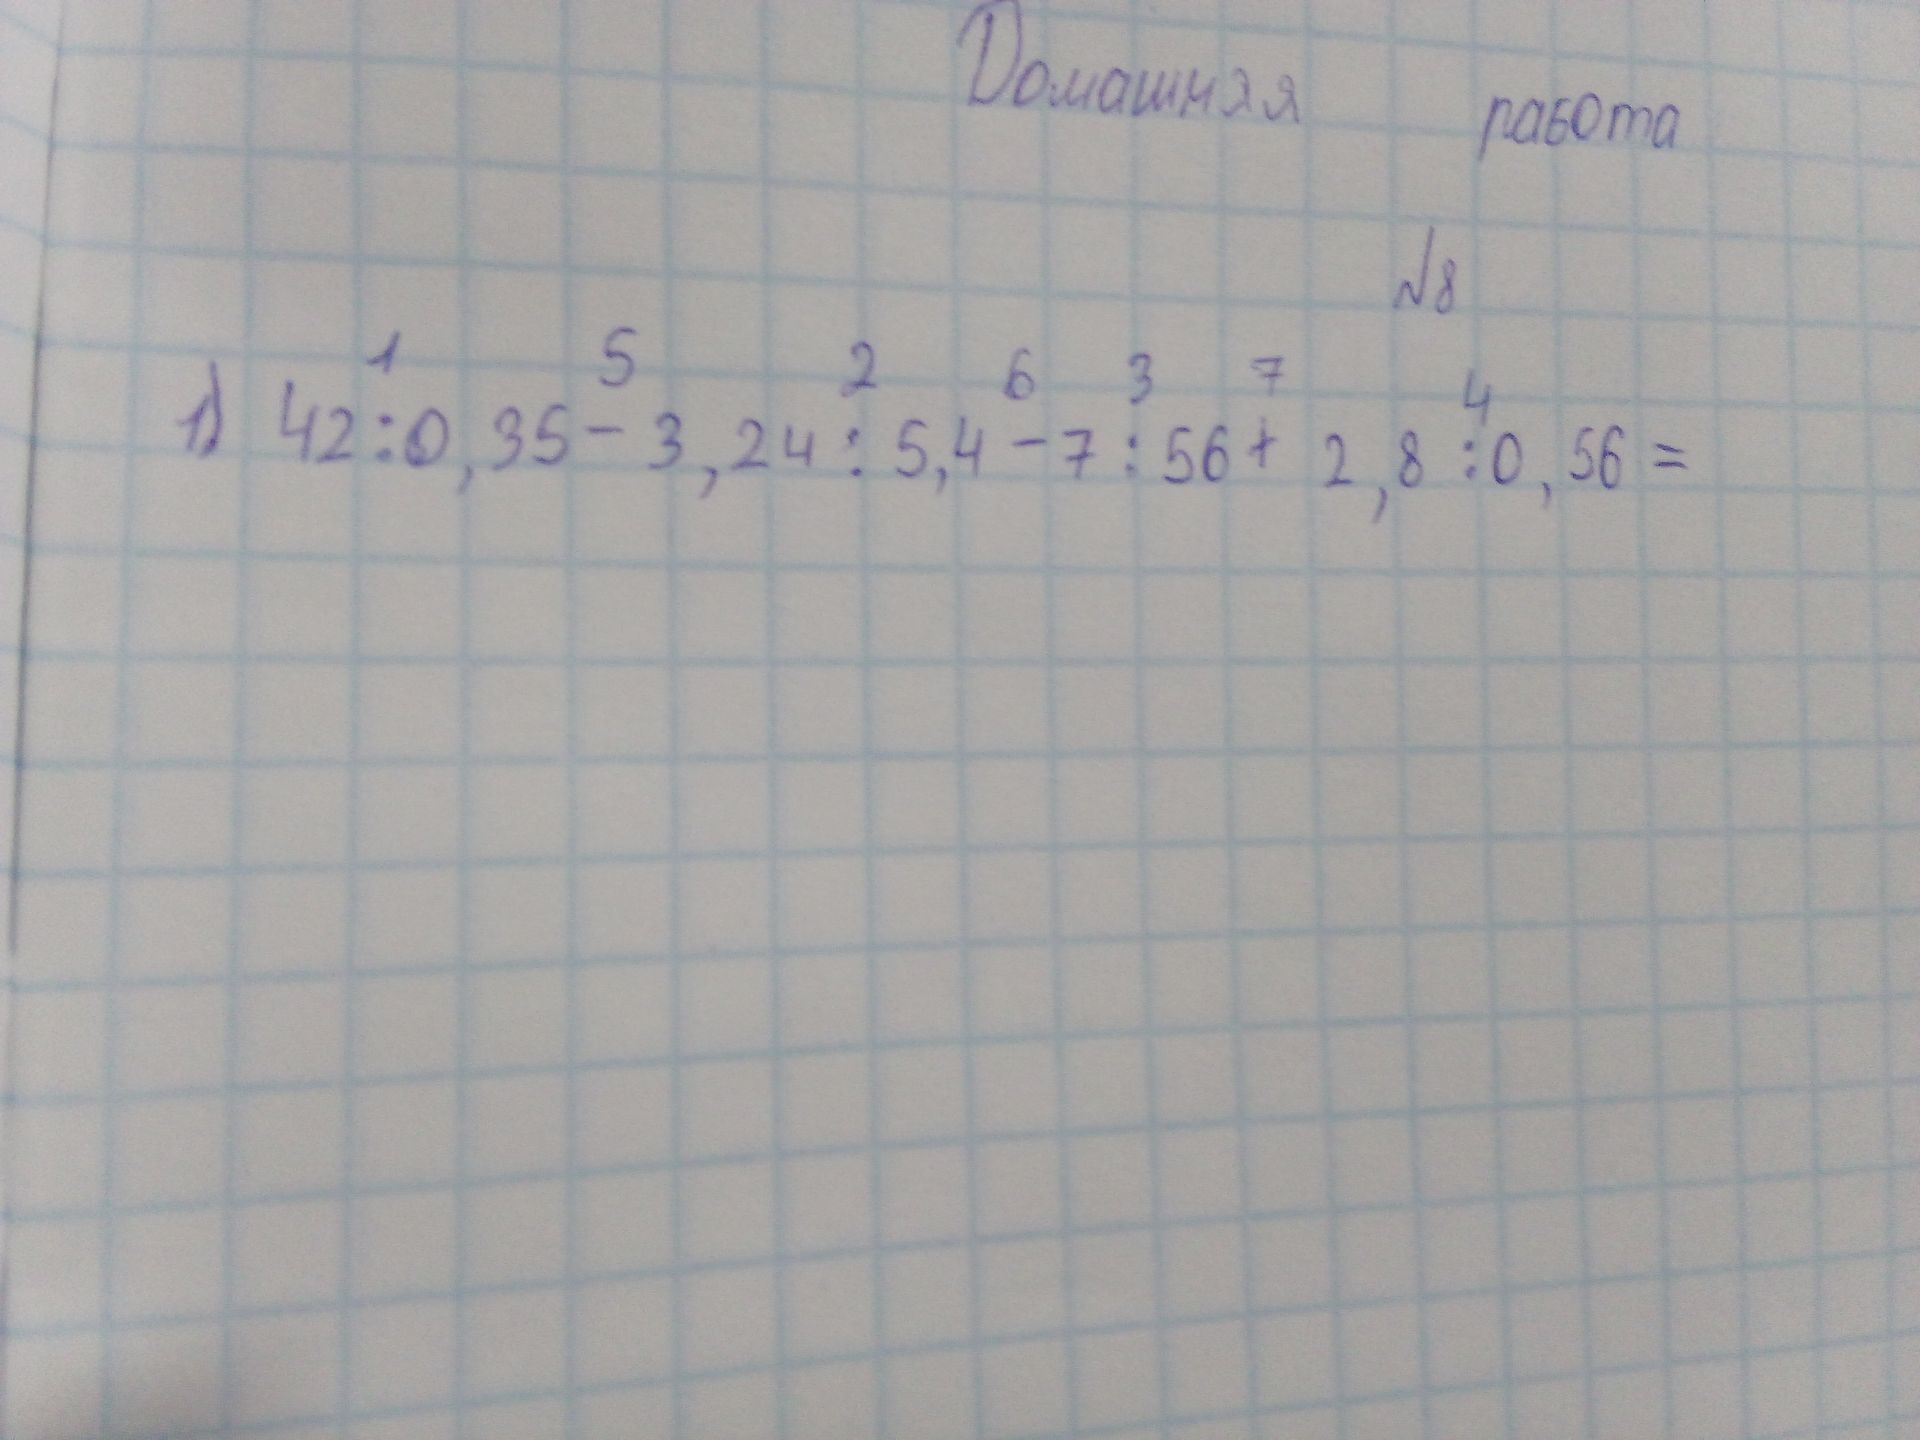 Домашняя работа
№8
1 5 2 6 3 7 4
1) 42:0,35-3,24:5,4-7:56+2,8:0,56=